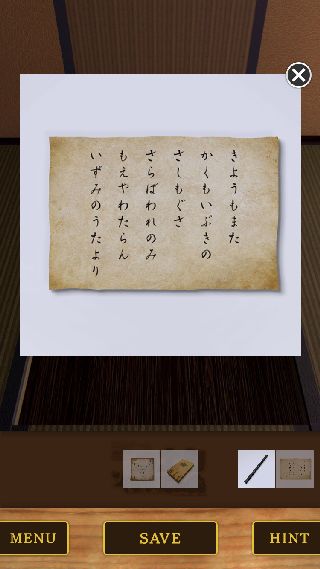 きようもまた
かくもいぶきの
さしもぐさ
さらばわれのみ
もえやわたらん
いずみのうたより
MENU
SAVE
HINT